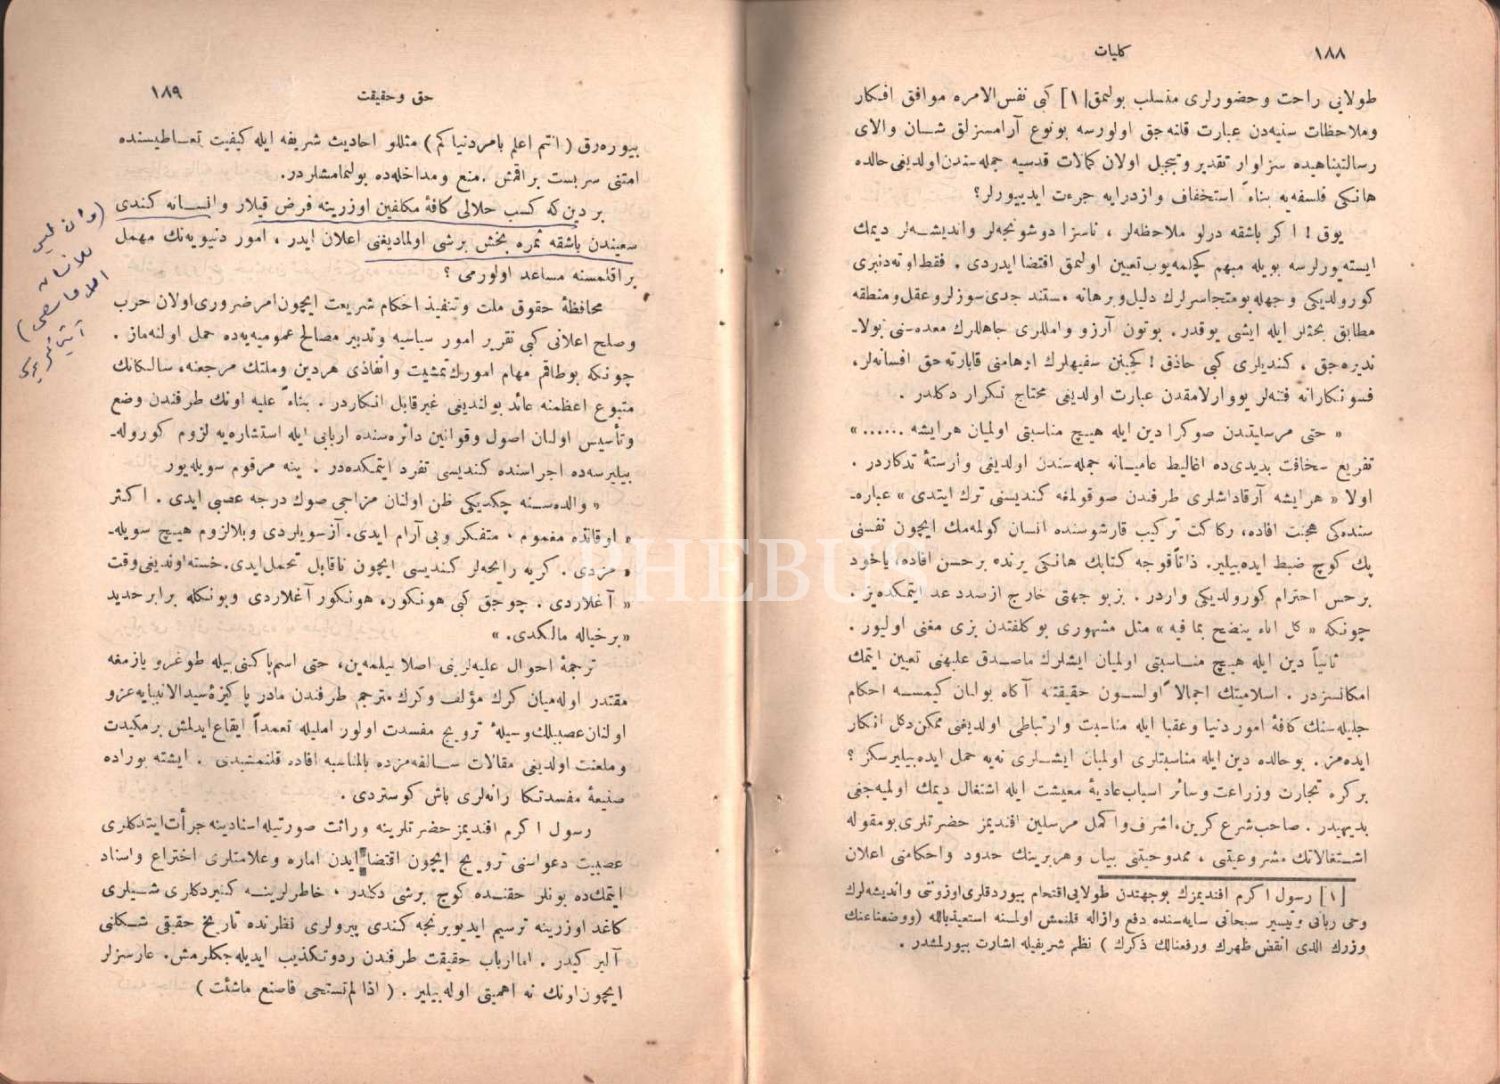 ١٨٨
كليات
طولايى راحت وحضورلرى منسلب بولنمق [١] كبى نفس الامره موافق افكار
وملاحظات سنيه‌دن عبارت قلنه‌جق اولورسه بونوع آرامسزلق شــان والاى
رسالتپناهيده سزاوار تقدير وتبجيل اولان كمالات قدسيه جمله‌سندن اولديغى حالده
هانكى فلسفه‌يه بناءً استخفاف وازدرايه جرءت ايديیورلر؟
يوق ! اكر باشقه درلو ملاحظه‌لر ، ناسزا دوشونجه‌لر وانديشه‌لر ديمك
ايسته‌يورلرسه بويله مبهم كچلمه‌يوب تعيين اولنمق اقتضا ايدردى . فقط اوته‌دنبرى
كورولديكى وجهله بو متجاسرلرك دليل وبرهانه مستند جدى سوزلر وعقل ومنطقه
مطابق بحثلر ايله ايشى يوقدر . بوتون آرزو واملارى جاهللرك معده‌سنى بولا-
نديره‌جق ، كنديلرى كبى حاذق ! كچينن سفيهلرك اوهامنى قابارته‌حق افسانه‌لر،
فسونكارانه فتنه‌لر يووارلامقدن عبارت اولديغى محتاج تكرار دكلدر .
« حتى مرسايتدن صوكرا دين ايله هيــچ مناسبتى اولميان هر ايشه ...... »
تفريع سخافت بديدى‌ده اغاليط عاميــانه جمله‌سندن اولديغى وارستهٔ تذكاردر .
اولا « هر ايشه آرقاداشلرى طرفندن صوقولمغه كنديسنى ترك ايتدى » عباره-
سنده‌كى هجنت افاده، ركاكت تركيب قارشوسنده انسان كولمه‌مك ايچون نفسنى
پك كوچ ضبط ايده‌بيلير. ذاتاً قوجه كتابك هانكى يرنده بر حسن افاده، ياخود
بر حس احترام كورولديكى واردر . بزبو جهتى خارج از صدد عد ايتمكده‌يز .
چونكه « كل اناء ينضح بما فيه » مثل مشهورى بو كلفتدن بزى مغنى اوليور .
ثانياً دين ايله هيــچ منــاسبتى اولميان ايشلرك ماصدق عليهنى تعيين ايتمك
امكانسزدر . اسلاميتك اجمالاً اولســون حقيقته آكاه بولنان كيمســه احكام
جليله‌سنك كافهٔ امور دنيا وعقبا ايله مناسبت وارتباطى اولديغنى ممكن دكل انكار
ايده‌مز. بو حالده دين ايله مناسبتلرى اولميان ايشــلرى نه‌يه حمل ايده‌بيليرسكز ؟
بر كره تجارت وزراعت وسائر اسباب عاديهٔ معيشت ايله اشتغال ديمك اولميه‌جغى
بديهيدر . صاحب شرع كرين، اشرف واكمل مرسلين افنديمز حضرتلرى بو مقوله
اشــتغالاتك مشروعيتى ، ممدوحيتنى بيان وهر برينك حدود واحكامنى اعلان
[١] رسول اكرم افنديمزك بو جهتدن طولايى اقتحام بيوردقلرى اوزونتى وانديشه‌لرك
وحى ربانى وتيسير سبحانى سايه‌سنده دفع وازاله قلنمش اولمنه استعيذ بالله (ووضعنا عنك
وزرك الذى انقض ظهرك ورفعنا لك ذكرك ) نظم شريفيله اشارت بيورلمشدر .
حق وحقيقت
١٨٩
بيوره‌رق ( انتم اعلم بامر دنياكم ) مثللو احاديث شريفه ايله كيفيت تعــاطيسنده
امتنى سربست براقمش ، منع ومداخله‌ده بولنمامشلردر.
بر دين كه كسب حلالى كافهٔ مكلفين اوزرينه فرض قيلار وانســانه كندى
سعيندن باشقه ثمره بخش برشى اولماديغنى اعلان ايدر ، امور دنيويه‌نك مهمل
براقلمسنه مساعد اولورمى ؟
(وان ليس
للانسان
الا ما سعى)
محافظهٔ حقوق ملت وتنفيذ احكام شريعت ايچون امر ضرورى اولان حرب
وصلح اعلانى كبى تقرير امور سياسيه وتدبير مصالح عموميه‌يه‌ده حمل اولنه‌ماز .
چونكه بو طاقم مهام امورك تمشيت وانفاذى هر دين وملتك مرجعنه، سالكانك
متبوع اعظمنه عائد بولنديغى غير قابل انكاردر . بناءً عليه اونك طرفندن وضع
وتأسيس اولنان اصول وقوانين دائره‌سنده اربابى ايله استشاره‌يه لزوم كوروله-
بيليرسه‌ده اجراسنده كنديسى تفرد ايتمكده‌در . ينه مرقوم سويله‌يور
« والده‌ســنه چكديكى ظن اولنان مزاجى صوك درجه عصبى ايدى . اكثر
« اوقاتده مغموم ، متفكر وبى آرام ايدى. آز سويلردى وبلالزوم هيــچ سويله-
« مزدى . كريه رايحه‌لر كنديسى ايچون ناقابل تحمل ايدى. خسته اولنديغى وقت
« آغلاردى . چوجق كبى هونكور، هونكور آغلاردى وبونكله برابر حديد
« بر خياله مالكدى. »
ترجمهٔ احوال عليه‌لرينى اصلا بيلمه‌ين، حتى اسم پاكنى بيله طوغرو يازمغه
مقتدر اوله‌ميان كرك مؤلف وكرك مترجم طرفندن مادر پاكيزهٔ سيد الانبيايه عزو
اولنان عصبيلك وسيلهٔ ترويج مفسدت اولور امليله تعمداً ايقاع ايدلمش بر مكيدت
وملعنت اولديغى مقالات ســالفه‌مزده بالمناسبه افاده قلنمشيدى . ايشته بوراده
صنيعهٔ مفسدتكارانه‌لرى باش كوستردى .
رسول اكرم افنديمز حضرتلرينه وراثت صورتيله اسنادينه جرأت ايتدكلرى
عصبيت دعواسنى ترويج ايچون اقتضا ايدن اماره وعلامتلرى اختراع واسناد
ايتمك‌ده بونلر حقنــده كوچ برشى دكلدر ، خاطرلرينــه كتيردكلرى شــيلرى
كاغد اوزرينه ترسيم ايديويرنجه كندى پيرولرى نظرنده تاريخ حقيقى شــكلنى
آلير كيدر . اما ارباب حقيقت طرفندن رد وتكذيب ايديله‌جكلرمش. عارسزلر
ايچون اونك نه اهميتى اوله‌بيلير . ( اذا لم تستحى فاصنع ماشئت )
PHEBUS